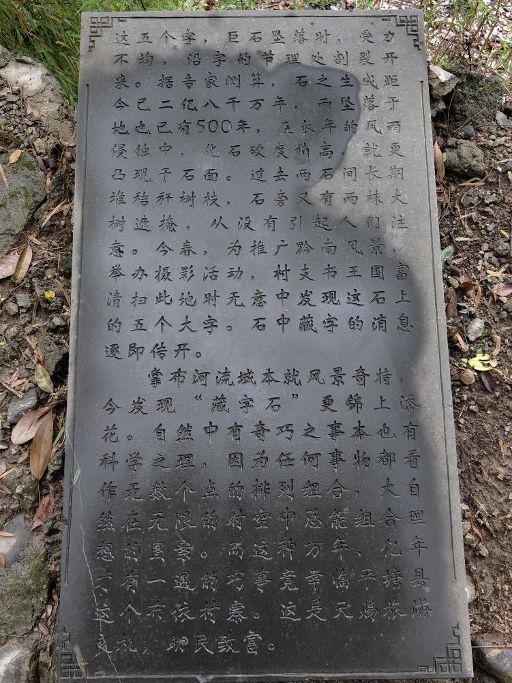 这五个字，巨石坠落时，受力
不均，沿字的节理处割裂开
来。据专家测算，石之生成距
今已二亿八千万年，而坠落于
地也已有500年，在长年的风雨
侵蚀中，化石硬度稍高，就更
凸现于石面。过去两石间长期
堆秸秆树枝，石旁又有两株大
树遮掩，从没有引起人们注
意。今春，为推广黔南风景，
举办摄影活动，村支书王国富
清扫此地时无意中发现这石上
的五个大字。石中藏字的消息
逐即传开。
掌布河流域本就风景奇特，
今发现“藏字石”更锦上添
花。自然中有奇巧之事本也有
科学之理，因为任何事物，都看
作无数个点的排列组合，大自
然在无限的时空中总能组合理
想的图案。而这种万年、亿年
才有一遇的巧事竟幸临平塘县
这个布依村寨。这是天赐旅游
良机，助民致富。